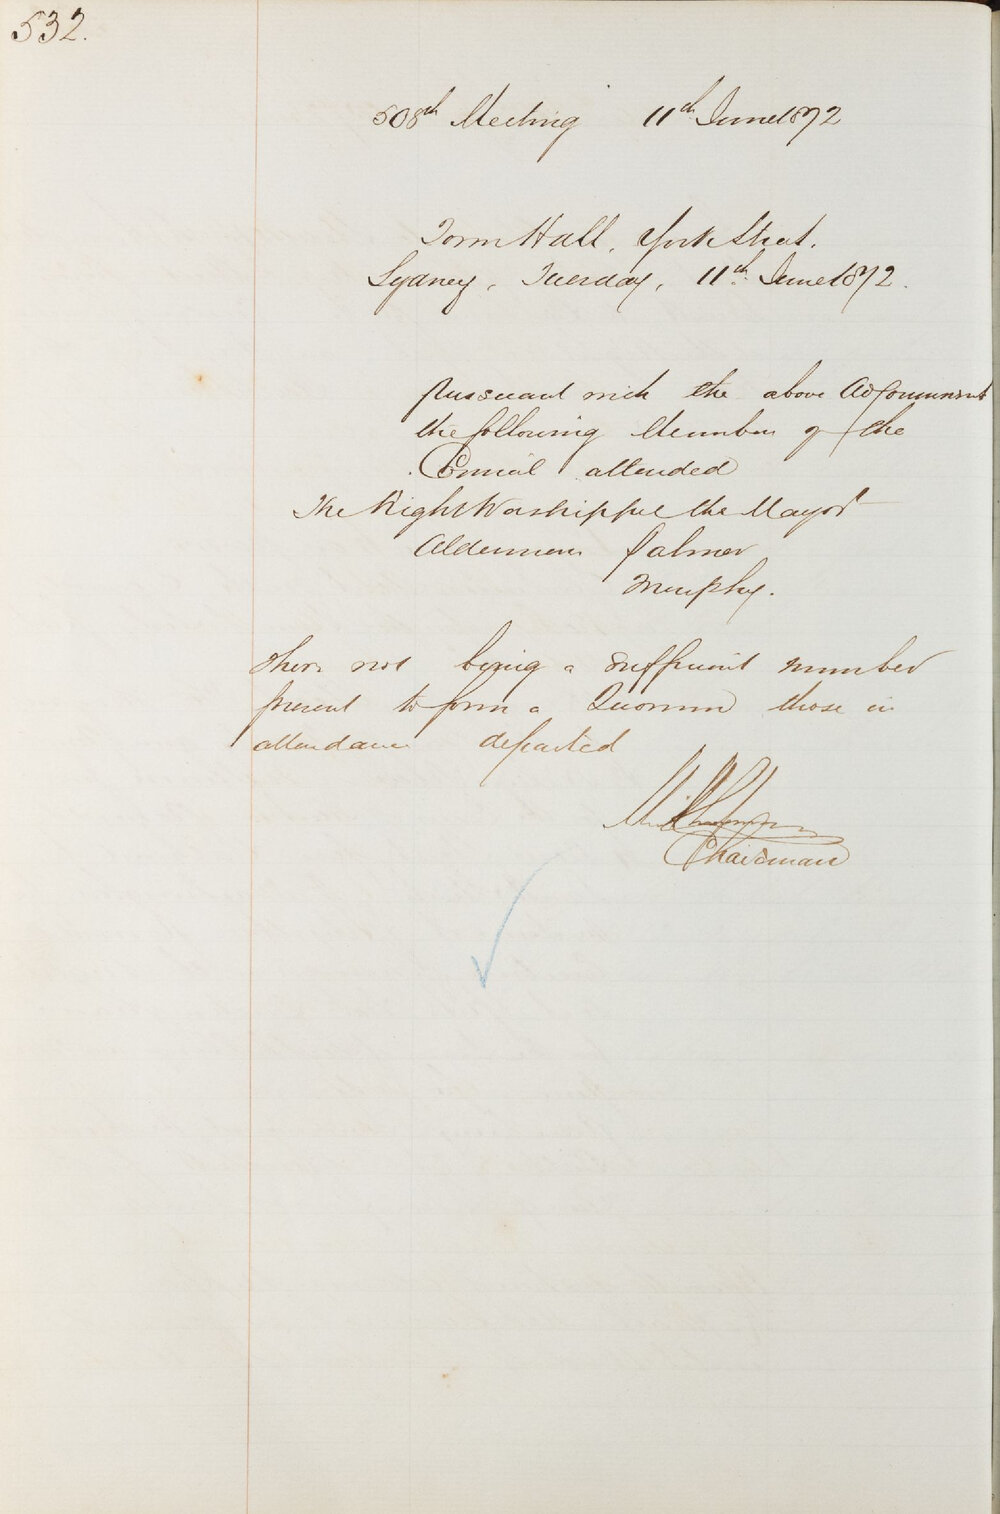 532.
508th Meeting 11th June 1872
Town Hall, York Street.
Sydney, Tuesday, 11th June 1872.
Pursuant with the above Adjournment
the following Members of the
Council attended
The Right Worshipful the Mayor
Aldermen Palmer
Murphy.
There not being a sufficient number
present to form a Quorum those in
attendance departed
Chairman